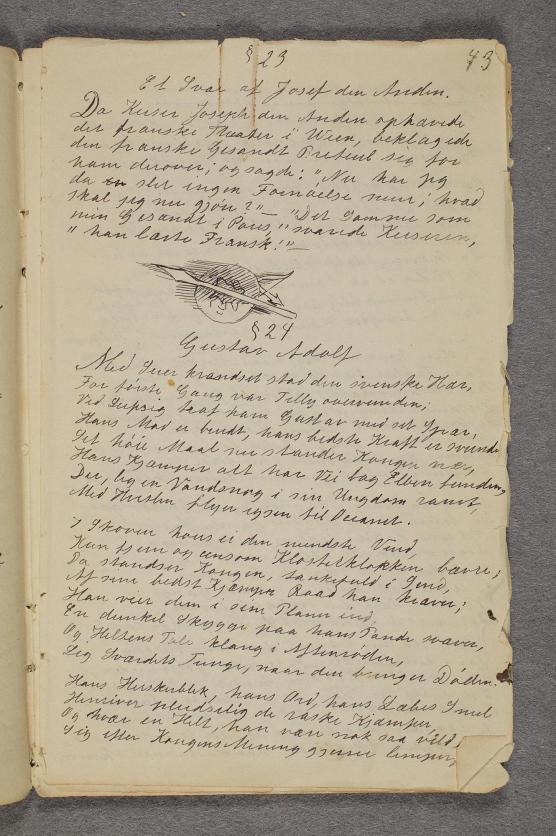 § 23
73
Et Svar af Josef den Anden.
Da Keiser Joseph den Anden ophævede
det franske Theater i Wien, beklagede
den franske Gesandt Breteuil sig for
ham derover; og sagde: "Nu har jeg
da slet ingen Fornøielse mere; hvad
skal jeg nu gjøre?" — "Det Samme som
min Gesandt i Paris," svarede Keiseren,
"han lærte Fransk!" —
§ 24
Gustav Adolf
Med Seier krandset stod den svenske Hær,
For første Gang var Tilly overvunden;
Ved Leipzig traf ham Gustav med sit Sværd,
Hans Mod er bøidt, hans bedste Kraft er svunden
Det høie Maal nu stander Kongen nær,
Hans Kjæmper alt har Vei bag Elben funden,
Der, lig en Vandsnog i sin Ungdom
Med Hvislen flyer igjen til Oceanet.
I Skoven høres ei den mindste Vind,
Kun fjern og eensom Klosterklokken bæver;
Da standser Kongen, tankefuld i Sind,
Af sine bedste Kjæmper Raad han kræver;
Han vier dem i sine Planer ind,
En dunkel Skygge paa hans Pande svæver,
Og Heltens Tale klang i Aftenrøden,
Lig Sværdets Tunge, naar den bringer Døden.
Hans Herskerblik, hans Ord, hans Læbes Smil
Henriver pludselig de raske Kjæmper
Og hvær en Helt, han være nok saa vild,
Sig efter Kongens Mening gjerne lemper,